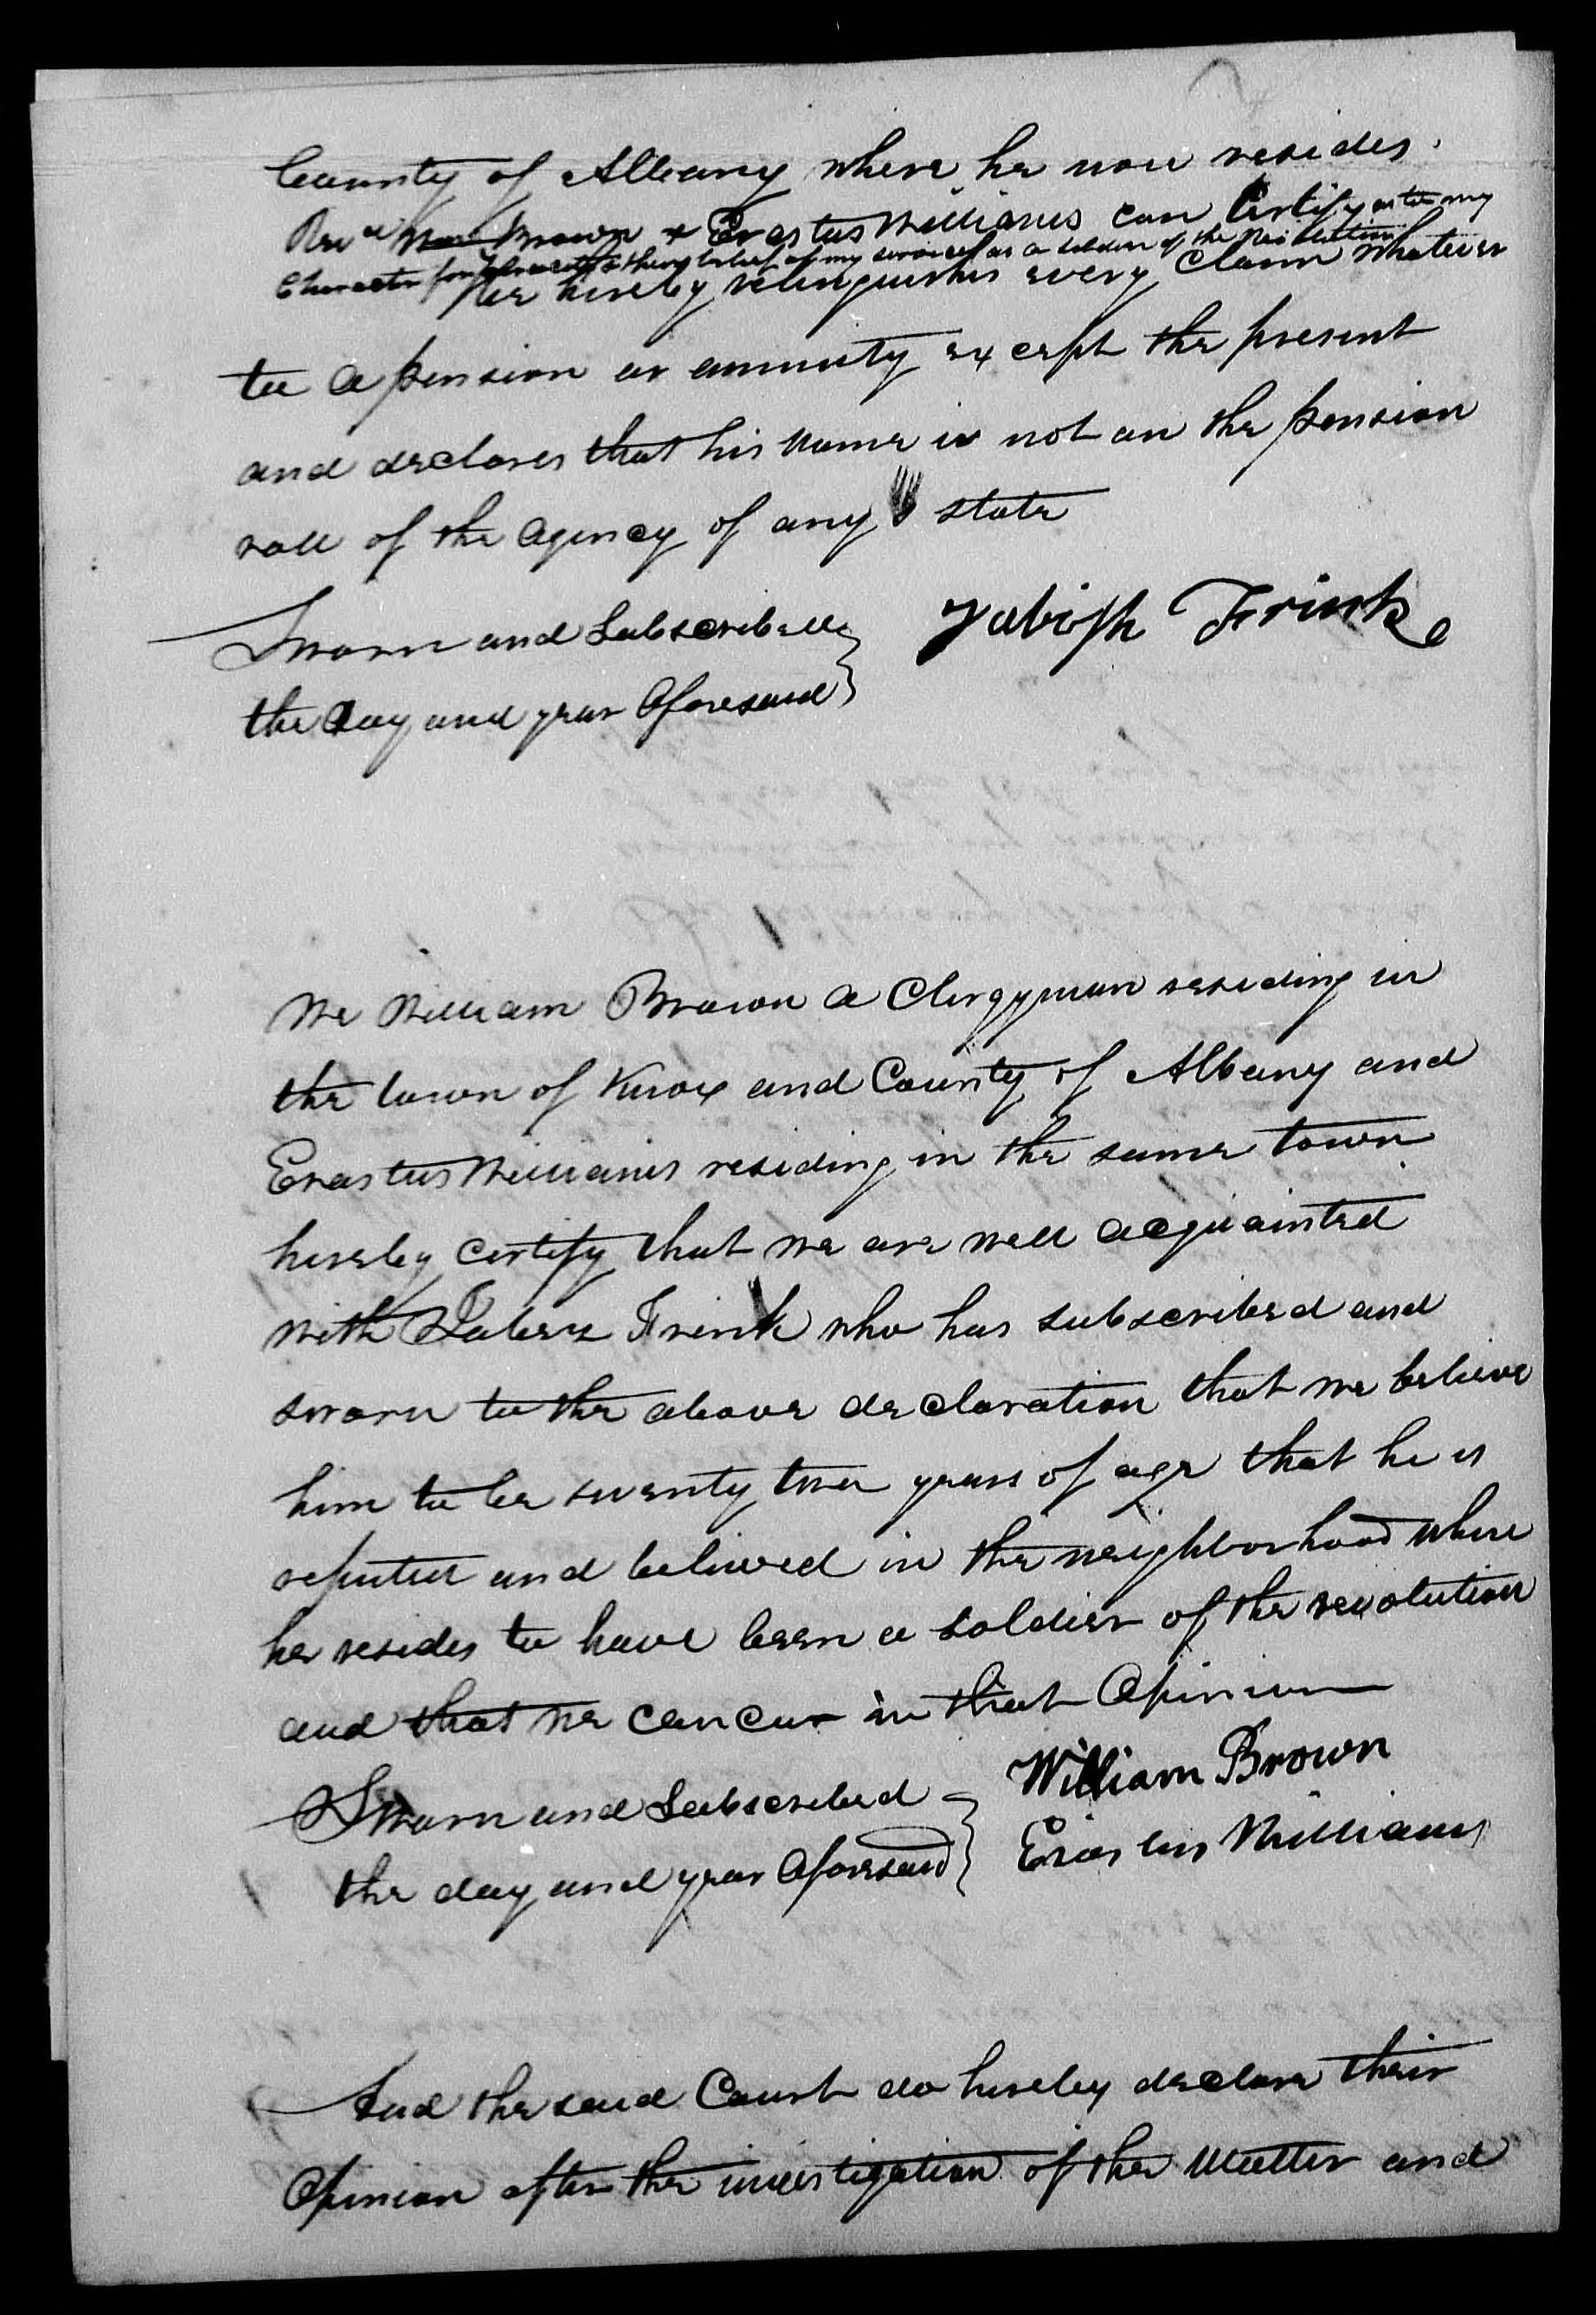 County of Albany where he now resides.
Revd Wm Brown & Erastus Williams can Certify as to my
Character for veracity & their belief of my services as a soldier of the Revolution
He hereby relinquishes every Claim whatever
to a pension or annuity except the present
and declares that his name is not on the pension
roll of the agency of any state
Sworn and Subscribed
the day and year aforesaid
Jabish Frink
We William Brown a Clergyman residing in
the town of Knox and County of Albany and
Erastus Williams residing in the same town
hereby certify that we are well acquainted
with Jabez Frink who has subscribed and
sworn to the above declaration that we believe
him to be seventy two years of age that he is
reputed and believed in the neighborhood where
he resides to have been a soldier of the revolution
and that we concur in that opinion
Sworn and Subscribed
the day and year aforesaid
William Brown
Erastus Williams
And the said Court do hereby declare their
opinion after the investigation of the matter and